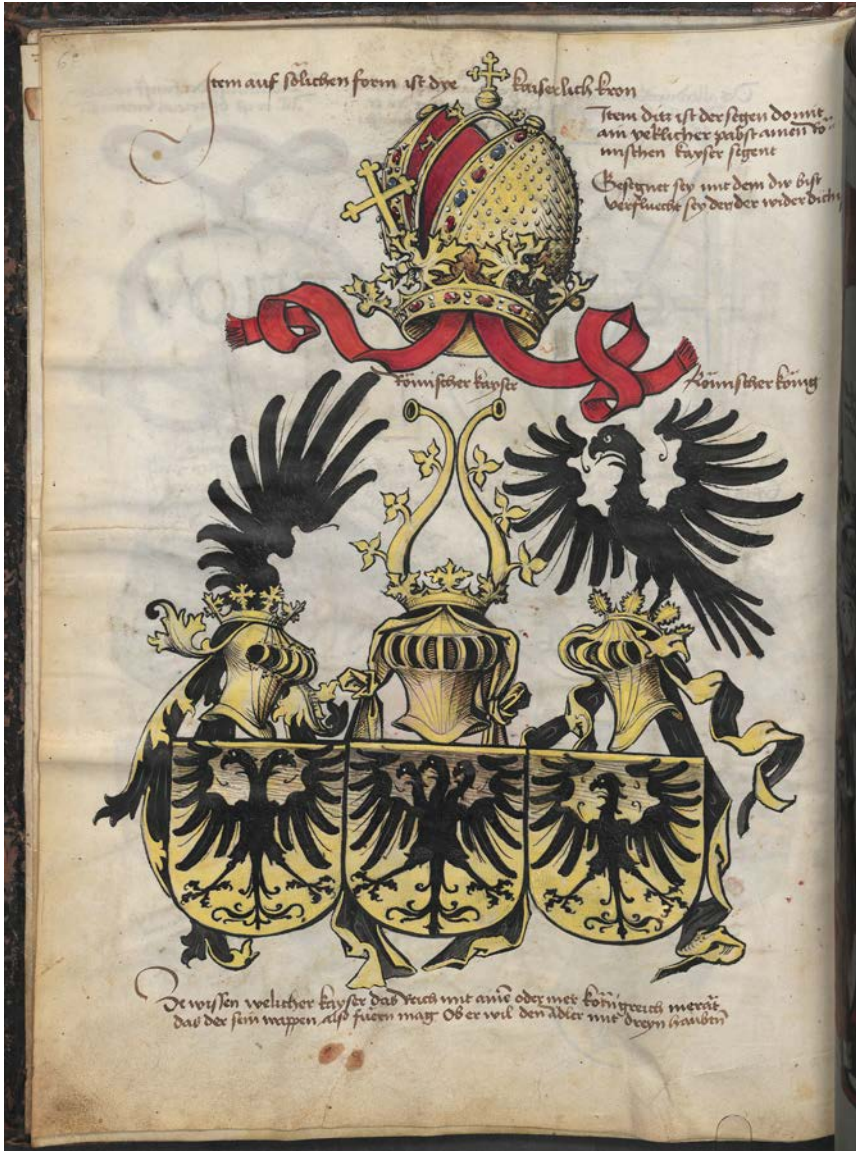 6
Item auf sölichen form ist dye kaiserlich kron
Item ditz ist der segen domit
ain yeklicher pabst ainen rö-
mischen kayser segent
Gesegnet sey mit dem dw bist
verfluecht sey der der wider dich
Römischer kayser
Römischer König
Ze wissen welicher kayser das Reich mit aim oder mer königreich merät
das der sein wappen also fueren mag Ob er wil den Adler mit dreyn haubten